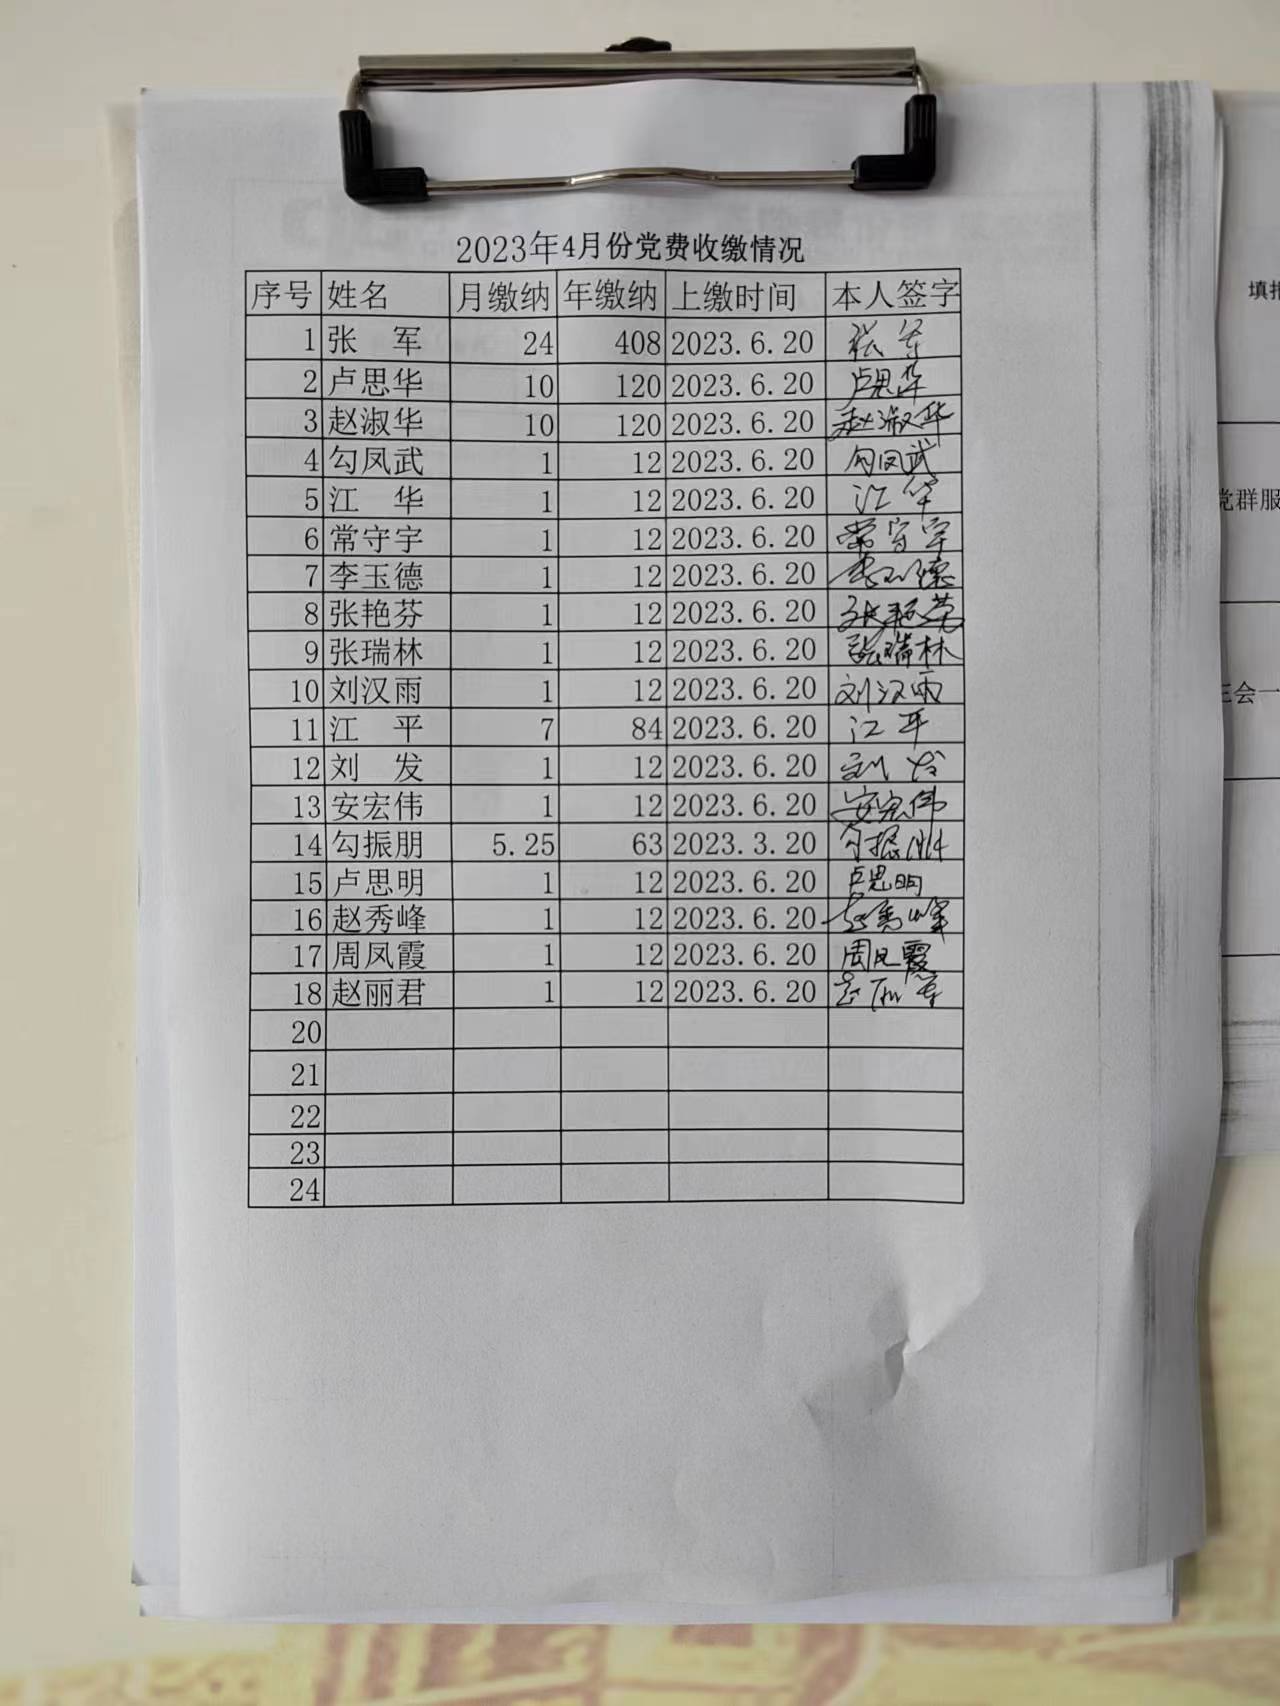 2023年4月份党费收缴情况
序号 姓名 月缴纳 年缴纳 上缴时间 本人签字
1 张 军 24 408 2023.6.20 张军
2 卢思华 10 120 2023.6.20 卢思华
3 赵淑华 10 120 2023.6.20 赵淑华
4 勾凤武 1 12 2023.6.20 勾凤武
5 江 华 1 12 2023.6.20 江华
6 常守宇 1 12 2023.6.20 常守宇
7 李玉德 1 12 2023.6.20 李玉德
8 张艳芬 1 12 2023.6.20 张艳芬
9 张瑞林 1 12 2023.6.20 张瑞林
10 刘汉雨 1 12 2023.6.20 刘汉雨
11 江 平 7 84 2023.6.20 江平
12 刘 发 1 12 2023.6.20 刘发
13 安宏伟 1 12 2023.6.20 安宏伟
14 勾振朋 5.25 63 2023.3.20 勾振朋
15 卢思明 1 12 2023.6.20 卢思明
16 赵秀峰 1 12 2023.6.20 赵秀峰
17 周凤霞 1 12 2023.6.20 周凤霞
18 赵丽君 1 12 2023.6.20 赵丽君
20
21
22
23
24
填报
党群服
三会一